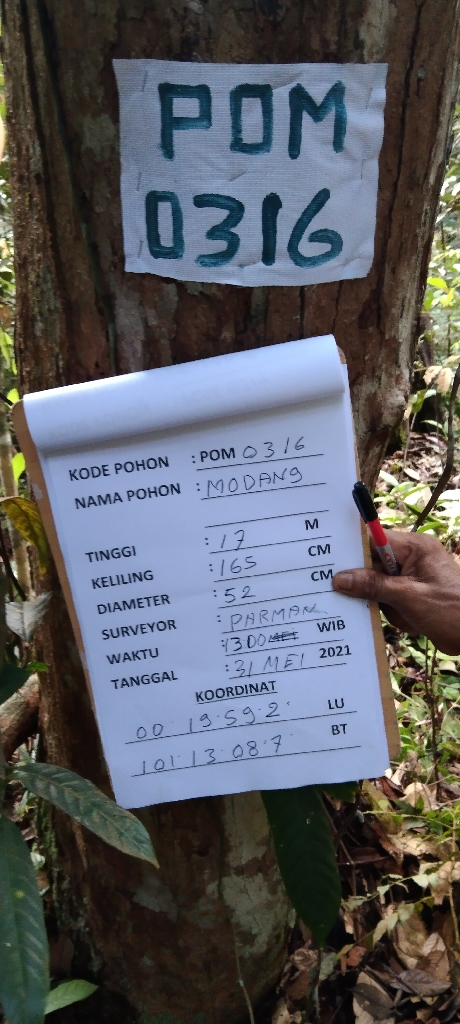 POM
0316
KODE POHON : POM 0316
NAMA POHON : MODANG
TINGGI : 17 M
KELILING : 165 CM
DIAMETER : 52 CM
SURVEYOR : PARMAN
WAKTU : 1300 WIB
TANGGAL : 31 MEI 2021
KOORDINAT
00. 19.59.2. LU
101.13.08.7 BT